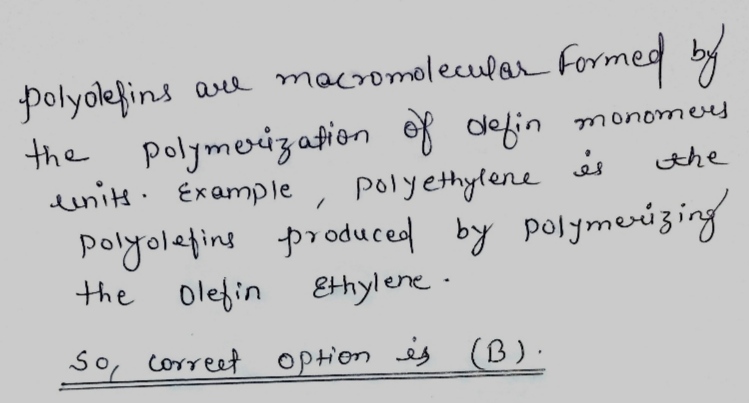 polyolefins are macromolecular formed by
the polymerization of olefin monomers
units. Example, polyethylene is the
polyolefins produced by polymerizing
the olefin Ethylene.
So, correct option is (B).